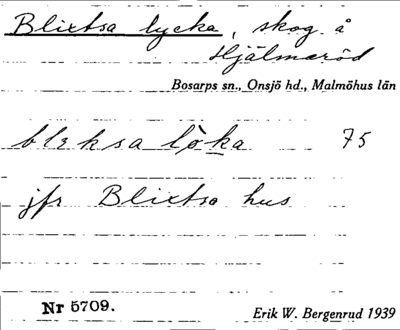 Blixtsa lycka, skog å
Hjälmaröd
Bosarps sn., Onsjö hd., Malmöhus län
bleksa lö̀ka 75
jfr Blixtsa hus
Nr 5709.
Erik W. Bergenrud 1939